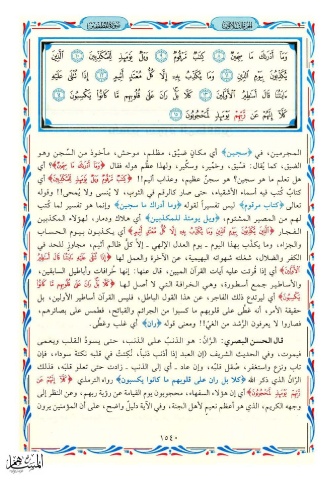 الجزء الثلاثون
سورة المطففين
وَمَا أَدْرَاكَ مَا سِجِّينٌ ۝ كِتَابٌ مَّرْقُومٌ ۝ وَيْلٌ يَوْمَئِذٍ لِّلْمُكَذِّبِينَ ۝ الَّذِينَ
يُكَذِّبُونَ بِيَوْمِ الدِّينِ ۝ وَمَا يُكَذِّبُ بِهِ إِلَّا كُلُّ مُعْتَدٍ أَثِيمٍ ۝ إِذَا تُتْلَىٰ عَلَيْهِ
آيَاتُنَا قَالَ أَسَاطِيرُ الْأَوَّلِينَ ۝ كَلَّا بَلْ رَانَ عَلَىٰ قُلُوبِهِم مَّا كَانُوا يَكْسِبُونَ ۝
كَلَّا إِنَّهُمْ عَن رَّبِّهِمْ يَوْمَئِذٍ لَّمَحْجُوبُونَ ۝
المجرمين، في ﴿سجين﴾ أي مكان ضيّق، مظلم، موحش، مأخوذ من السجن وهو
الضيق، كما يقال: فسّيق، وخمّير، وسكّير، ولهذا عظّم هوله فقال ﴿وَمَا أَدْرَاكَ مَا سِجِّينٌ﴾؟ أي
هل تعلم ما هو سجين؟ هو سجنٌ عظيم، وعذاب أليم!! ﴿كِتَابٌ مَّرْقُومٌ وَيْلٌ يَوْمَئِذٍ لِّلْمُكَذِّبِينَ﴾ أي
كتابٌ كُتب فيه أسماء الأشقياء، حتى صار كالرقم في الثوب، لا يُنسى ولا يُمحى!! وقوله
تعالى ﴿كتاب مرقوم﴾ ليس تفسيراً لقوله ﴿وما أدراك ما سجين﴾ وإنما هو تفسير لما كُتب
لهم من المصير المشئوم، ﴿ويل يومئذ للمكذبين﴾ أي هلاك ودمار، لهؤلاء المكذبين
الفجار ﴿الَّذِينَ يُكَذِّبُونَ بِيَوْمِ الدِّينِ وَمَا يُكَذِّبُ بِهِ إِلَّا كُلُّ مُعْتَدٍ أَثِيمٍ﴾ أي يكذبون بيوم الحساب
والجزاء، وما يكذّب بهذا اليوم ـ يوم العدل الإلهي ـ إلّا كلُّ ظالم أثيم، مجاوزٍ للحد في
الكفر والضلال، شغلته شهواته البهيمية، عن الآخرة والعمل لها ﴿إِذَا تُتْلَىٰ عَلَيْهِ آيَاتُنَا قَالَ أَسَاطِيرُ
الْأَوَّلِينَ﴾ أي إذا قُرئت عليه آيات القرآن المبين، قال عنها: إنها خرافات وأباطيل السابقين،
والأساطير جمع أسطورة، وهي الخرافة التي لا أصل لها ﴿كَلَّا بَلْ رَانَ عَلَىٰ قُلُوبِهِم مَّا كَانُوا
يَكْسِبُونَ﴾ أي ليرتدع ذلك الفاجر، عن هذا القول الباطل، فليس القرآن أساطير الأولين، بل
حقيقة الأمر، أنه غطّى على قلوبهم ما كسبوا من الجرائم والقبائح، فطمس على بصائرهم،
فصاروا لا يعرفون الرُّشد من الغيّ!! ومعنى قوله ﴿ران﴾ أي غلب وغطّى.
قال الحسن البصري: الرَّانُ: هو الذنبُ على الذنب، حتى يسودّ القلب ويعمى
فيموت، وفي الحديث الشريف (إن العبد إذا أذنب ذنباً، نُكتت في قلبه نكتة سوداء، فإن
تاب ونزع واستغفر، صُقل قلبه، وإن عاد ـ أي إلى الذنب ـ زادت حتى تعلو قلبه، فذلك
الرَّانُ الذي ذكر الله ﴿كلا بل ران على قلوبهم ما كانوا يكسبون﴾ رواه الترمذي ﴿كَلَّا إِنَّهُمْ عَن
رَّبِّهِمْ يَوْمَئِذٍ لَّمَحْجُوبُونَ﴾ أي إن هؤلاء السفهاء، محجوبون يوم القيامة عن رؤية ربهم، وعن النظر إلى
وجهه الكريم، الذي هو أعظم نعيم لأهل الجنة، وفي الآية دليلٌ واضح، على أن المؤمنين يرون
١٥٤٠